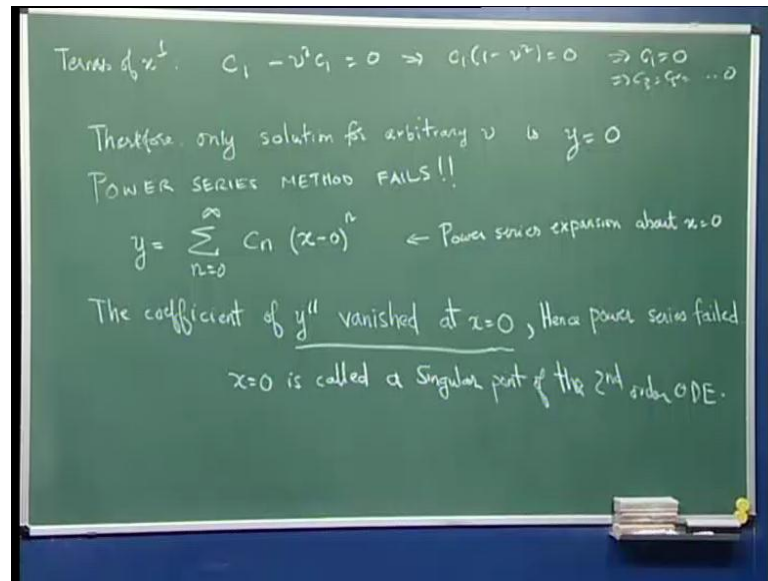 Terms of x¹: C₁ - ν²C₁ = 0 ⇒ C₁(1-ν²) = 0 ⇒ C₁=0
⇒ C₃ = C₅ = ... 0
Therefore, only solution for arbitrary ν is y=0
POWER SERIES METHOD FAILS!!
y = ∑_{n=0}^{∞} Cn (x-0)ⁿ ← Power series expansion about x=0
The coefficient of y" vanished at x=0, Hence power series failed
x=0 is called a Singular point of the 2nd order ODE.